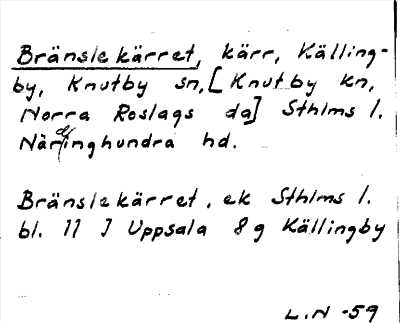 Bränslekärret, kärr, Källing-
by, Knutby sn, [Knutby kn,
Norra Roslags da] Sthlms l.
Närdinghundra hd.
Bränslekärret, ek Sthlms l.
bl. 11 J Uppsala 8g Källingby
L.N -59